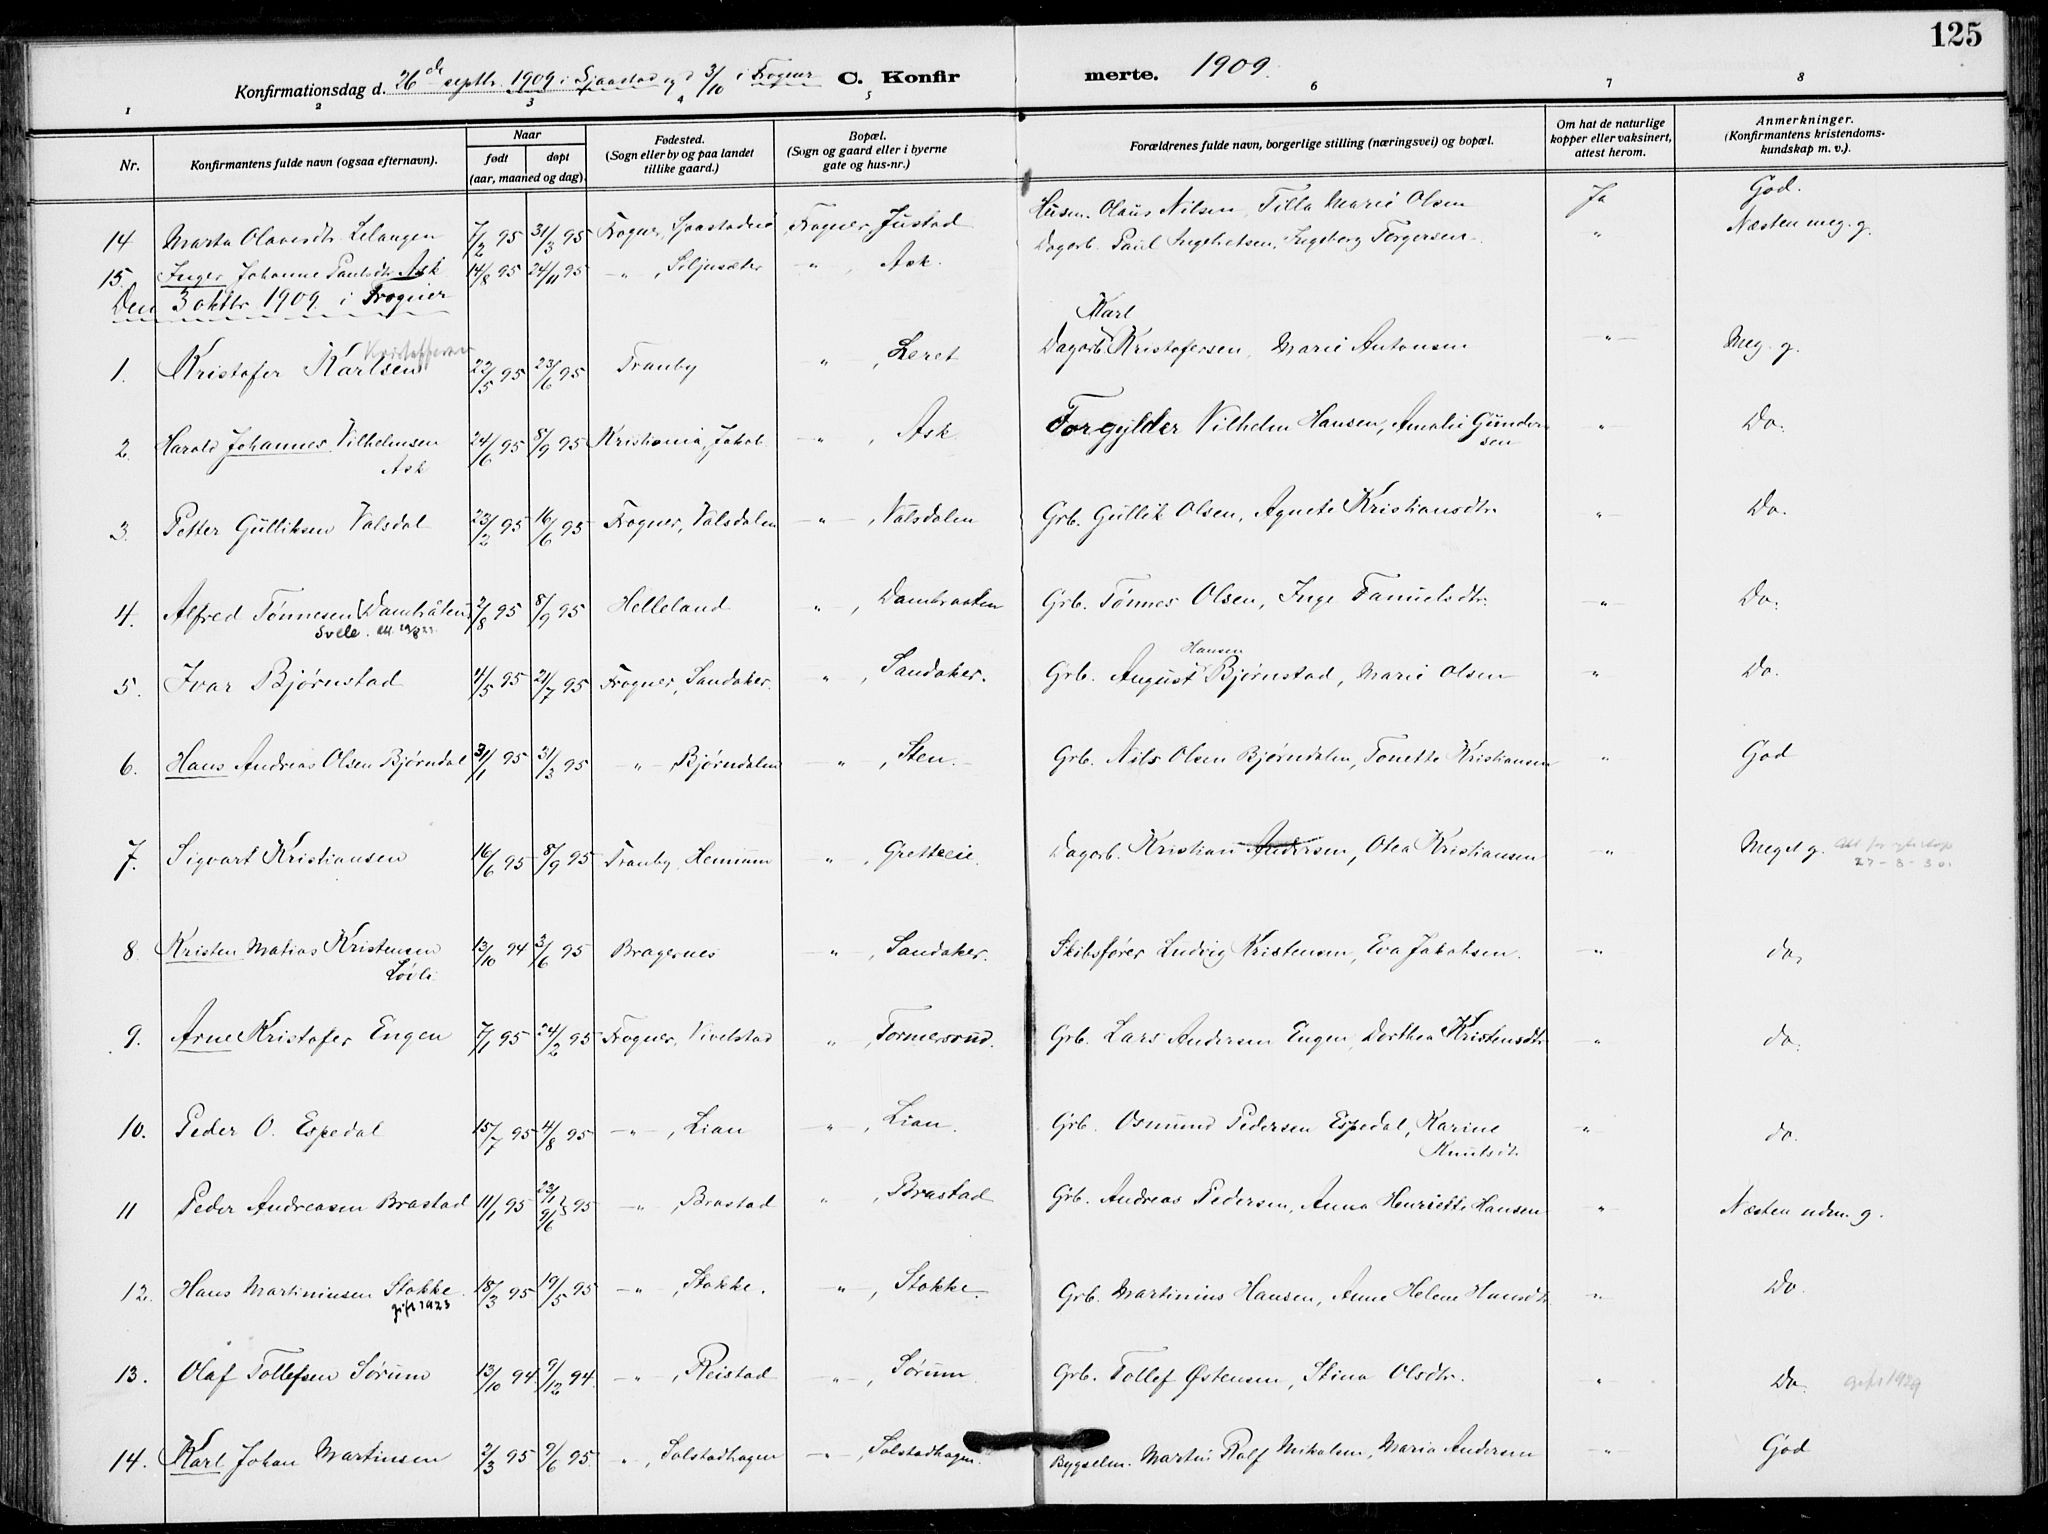 125
Konfirmationsdag d. 26de septbr. 1909 i Sjaastad og d 3/10 i Frogner C. Konfirmerte. 1909.
1 2 3 4 5 6 7 8
Nr.
Konfirmantens fulde navn (ogsaa efternavn).
Naar
født døpt
(aar, maaned og dag).
Fødested.
(Sogn eller by og paa landet
tillike gaard.)
Bopæl.
(Sogn og gaard eller i byerne
gate og hus-nr.)
Forældrenes fulde navn, borgerlige stilling (næringsvei) og bopæl.
Om hat de naturlige
kopper eller vaksinert,
attest herom.
Anmerkninger.
(Konfirmantens kristendoms-
kundskap m. v.).
14 Marta Olavesdtr. Lelangen 7/2 95 31/3 95 Frogner, Frogner, Justad Husm. Olaus Nilsen, Tilla Marie Olsen Ja God.
15. Inger Johanne Paulsdtr. Ask 14/8 95 24/11 95 -"-, Siljusæter " , Ask. Dagarb. Paul Ingebretsen, Ingeborg Torgersen " Næsten meg. g.
Den 3 oktbr. 1909 i Frogner
1. Kristofer Karlsen Kristoffersen 22/5 95 23/6 95 Tranby " , Leret Dagarb. Karl Kristofersen, Marie Antonsen -"- Meg. g.
2. Harald Johannes Vilhelmsen 24/6 95 8/9 95 Kristiania, Jakob -"- , Ask Forgylder Vilhelm Hansen, Amalie Gunder- " Do.
Ask sen
3. Petter Gulliksen Valsdal 23/2 95 16/6 95 Frogner, Valsdalen -"-, Valsdalen Grb. Gullik Olsen, Agnete Kristiansdtr. " Do.
4. Alfred Tønnesen Dambråten 2/8 95 8/9 95 Helleland " , Dambraaten Grb. Tønnes Olsen, Inge Tanuelsdtr. " Do.
Svele.
5. Ivar Bjørnstad 4/5 95 21/7 95 Frogner, Sandaker. " , Sandaker. Grb. August Hansen Bjørnstad, Marie Olsen " Do.
6. Hans Andreas Olsen Bjørndal 31/1 95 31/3 95 -"-, Bjørndalen -"- , Sten. Grb. Nils Olsen Bjørndalen, Tonette Kristiansen " God
7. Sigvart Kristiansen 16/6 95 8/9 95 Tranby, Hennum " , Gretteeie Dagarb. Kristian Andersen, Otea Kristiansen " Meget g.
27-8-30.
8. Kristen Matias Kristensen 13/10 94 3/6 95 Bragernes -"- , Sandaker. Skibsfører Ludvig Kristensen, Eva Jakobsen. " do.
Løvli
9. Arne Kristofer Engen 7/1 95 24/2 95 Frogner, Vivelstad " , Tormersrud. Grb. Lars Andersen Engen, Dorthea Kristensdtr. " do.
10. Peder O. Espedal 15/7 95 4/8 95 -"-, Lian " , Lian. Grb. Osmund Pedersen Espedal, Karine " do.
Knutsdt.
11 Peder Andreasen Brastad 11/1 95 23/1 9/6 95 -"-, Brastad " , Brastad Grb. Andreas Pedersen, Anna Henriette Hansen " Næsten udm. g.
12. Hans Martiniusen Stokke. 18/3 95 19/5 95 -"-, Stokke. " , Stokke. Grb. Martinius Hansen, Anne Helene Hansdtr. " Do.
gift 1923
13. Olaf Tollefsen Sørum 13/10 94 9/12 94. -"-, Reistad -"-, Sørum. Grb. Tollef Østensen, Stina Olsdtr. " Do. gift 1929
14. Karl Johan Martinsen 2/3 95 9/6 95. -"-, Solstadhagen -"-, Solstadhagen. Bygselm. Martin Rolf Mikalsen, Maria Andersen " God